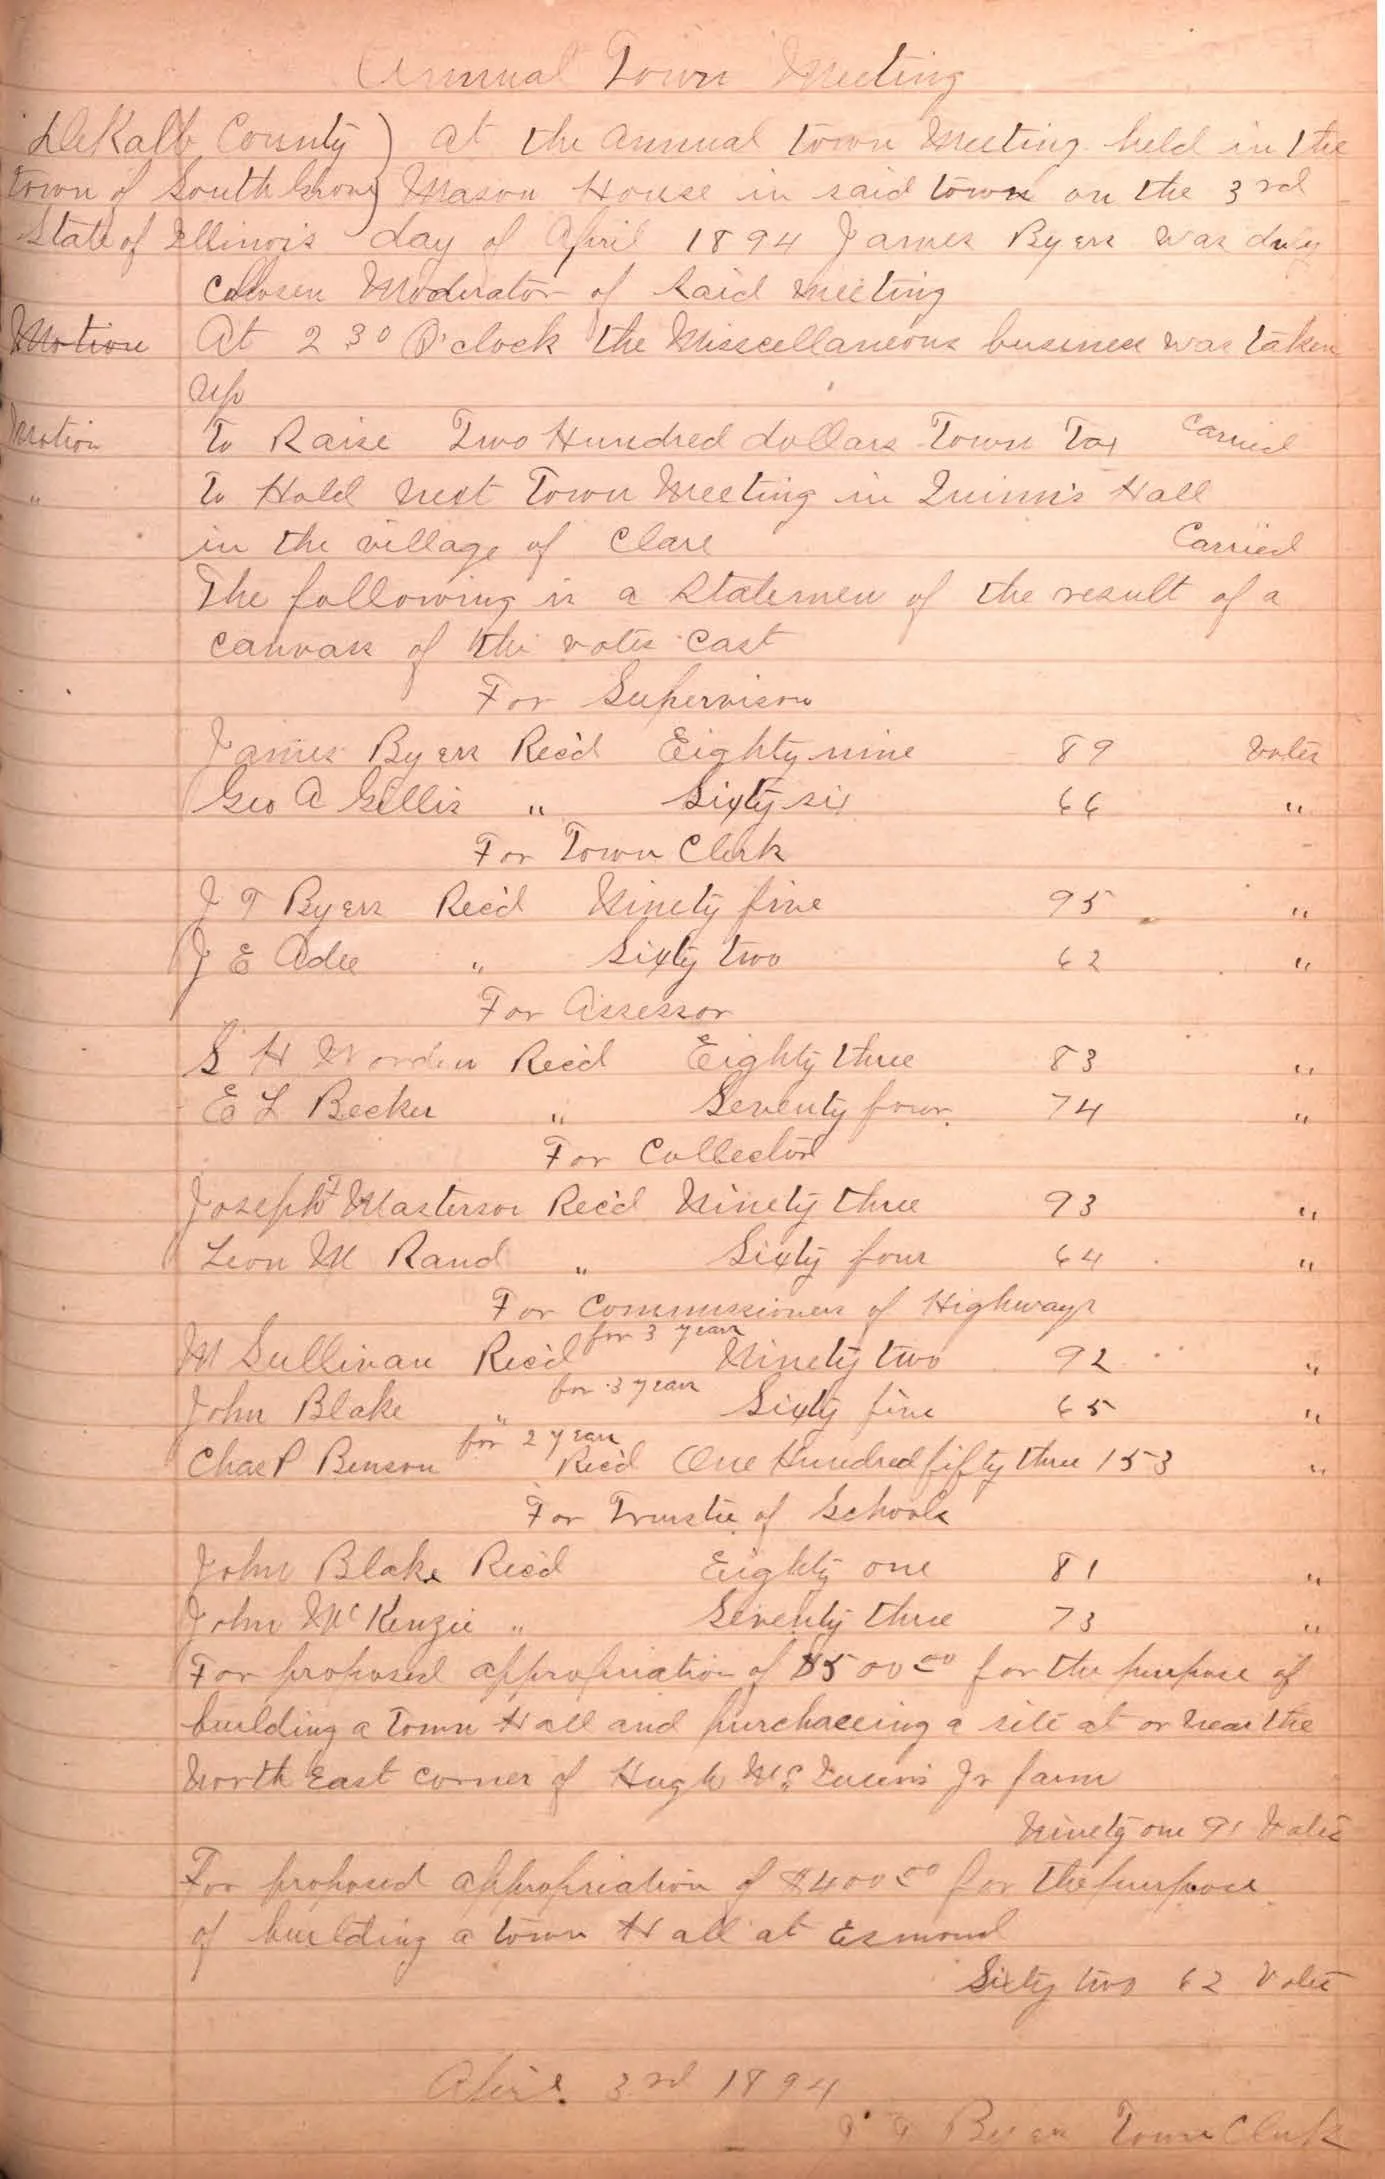 Annual Town Meeting
DeKalb County ) At the annual town Meeting held in the
Town of South Grove ) Mason House in said town on the 3rd
State of Illinois day of April 1894 James Byers was duly
chosen Moderator of said Meeting
Motion At 2 30 O'clock the Misscellaneous business was taken
up
Motion To Raise Two Hundred dollars Town Tax Carried
" To Hold next Town Meeting in Quinn's Hall
in the village of Clare Carried
The following is a Statemen of the result of a
canvass of the votes cast
For Supervisor
James Byers Rec'd Eighty nine 89 votes
Geo A Gillis " Sixty six 66 "
For Town Clerk
J T Byers Rec'd Ninety five 95 "
J E Adee " Sixty two 62 "
For Assessor
S H Worden Rec'd Eighty three 83 "
E L Becker " Seventy four 74 "
For Collector
Joseph F Masterson Rec'd Ninety three 93 "
Leon M Rand " Sixty four 64 "
For Commissioners of Highways
M Sullivan Rec'd for 3 years Ninety two 92 "
John Blake " for 3 years Sixty five 65 "
Chas P Benson for 2 years Rec'd One Hundred fifty three 153 "
For Trustee of Schools
John Blake Rec'd Eighty one 81 "
John McKenzie " Seventy three 73 "
For proposed appropriation of $500 00 for the purpose of
building a Town Hall and purchaceing a site at or near the
North East corner of Hugh Mc Jr farm
Ninety one 91 Votes
For proposed appropriation of $400 00 for the purpose
of building a town Hall at Esmond
Sixty two 62 Votes
April 3rd 1894
J T Byers Town Clerk